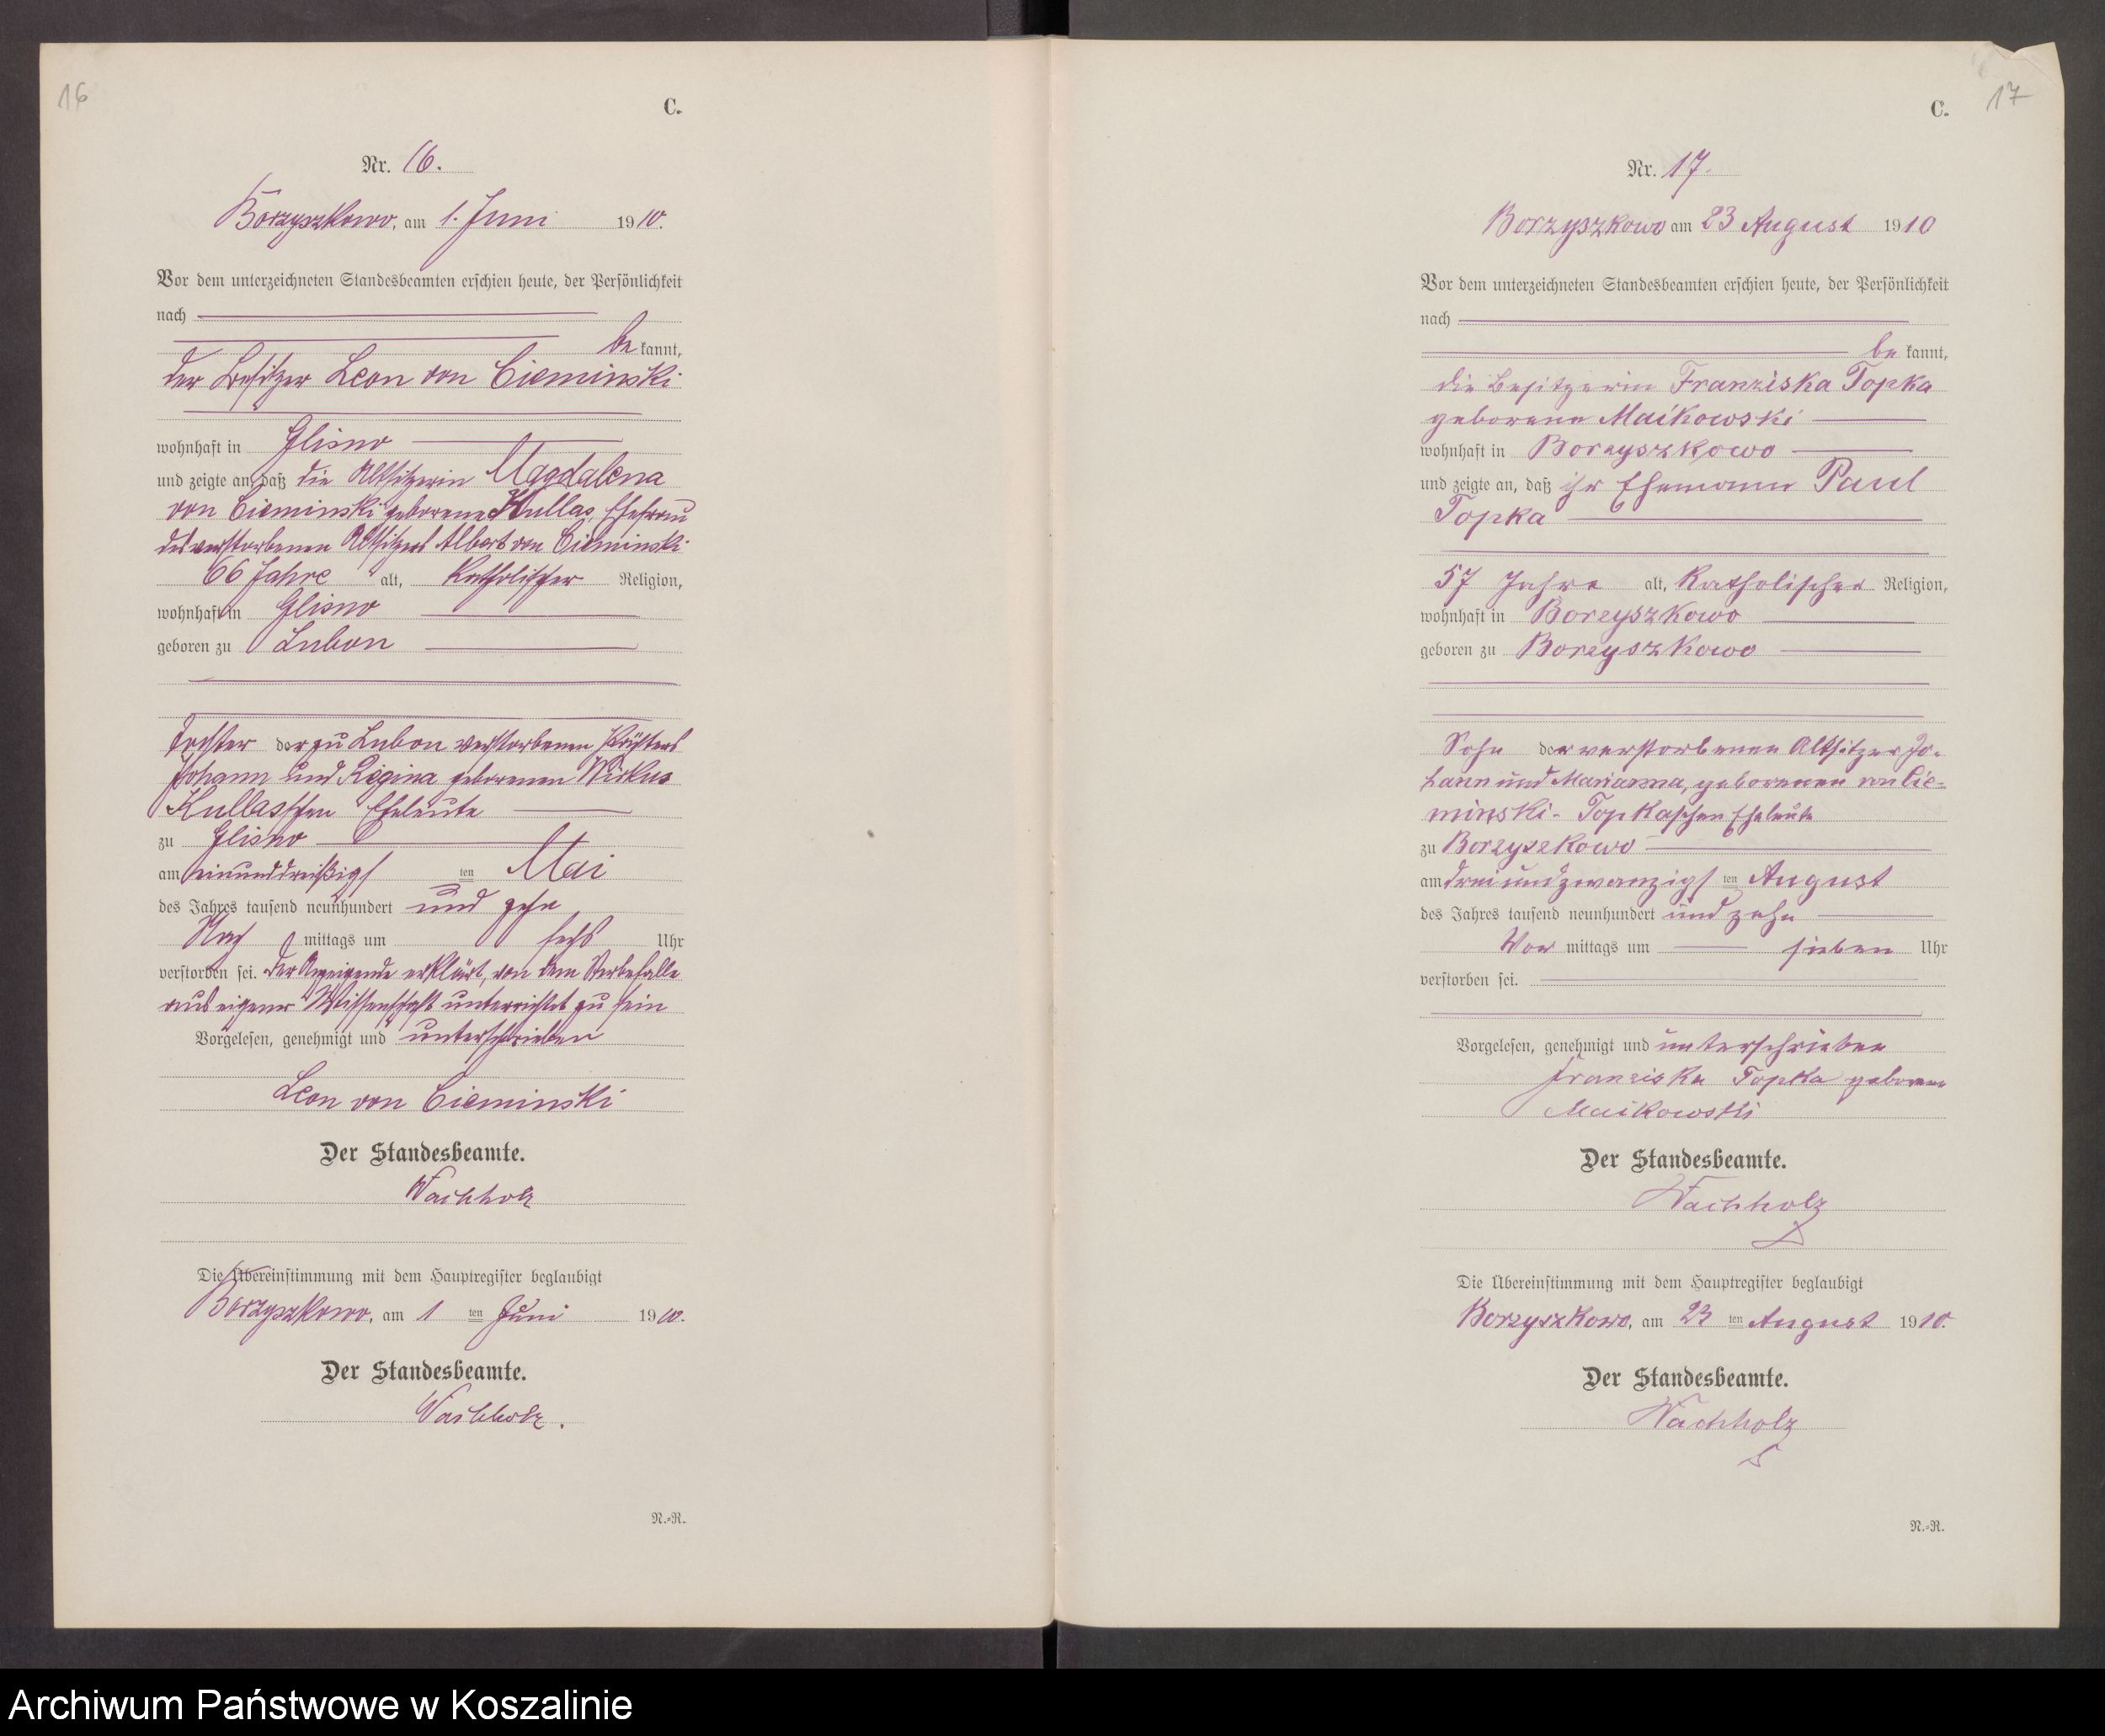 16
C.
Nr. 16.
Borzyszkowo, am 1. Juni 1910.
Vor dem unterzeichneten Standesbeamten erschien heute, der Persönlichkeit
nach
be kannt,
der Besitzer Leon von Cieminski
wohnhaft in Glisno
und zeigte an, daß die Altsitzerin Magdalena
von Cieminski geborene Kullas, Ehefrau
des verstorbenen Altsitzers Albert von Cieminski
66 Jahre alt, katholischer Religion,
wohnhaft in Glisno
geboren zu Lubon
Tochter der zu Lubon verstorbenen
Johann und Regina geborenen Wirkus
Kullasschen Eheleute
zu Glisno
am einunddreißigsten Mai
des Jahres tausend neunhundert und zehn
Nach mittags um sechs Uhr
verstorben sei. Der Anzeigende erklärt, von dem Sterbefalle
aus eigener Wissenschaft unterrichtet zu sein
Vorgelesen, genehmigt und unterschrieben
Leon von Cieminski
Der Standesbeamte.
Wachholz
Die Übereinstimmung mit dem Hauptregister beglaubigt
Borzyszkowo, am 1 ten Juni 1910.
Der Standesbeamte.
Wachholz.
N.-R.
17
C.
Nr. 17.
Borzyszkowo am 23 August 1910
Vor dem unterzeichneten Standesbeamten erschien heute, der Persönlichkeit
nach
be kannt,
die Besitzerin Franziska Topka
geborene Maikowski
wohnhaft in Borzyszkowo
und zeigte an, daß ihr Ehemann Paul
Topka
57 Jahre alt, katholischer Religion,
wohnhaft in Borzyszkowo
geboren zu Borzyszkowo
Sohn der verstorbenen Altsitzer Jo-
hann und Marianna, geborenen von Cie-
minski- Topkaschen Eheleute
zu Borzyszkowo
am dreiundzwanzigsten August
des Jahres tausend neunhundert und zehn
Vor mittags um sieben Uhr
verstorben sei.
Vorgelesen, genehmigt und unterschrieben
Franziska Topka geborene
Maikowski
Der Standesbeamte.
Wachholz
Die Übereinstimmung mit dem Hauptregister beglaubigt
Borzyszkowo, am 23 ten August 1910.
Der Standesbeamte.
Wachholz
N.-R.
Archiwum Państwowe w Koszalinie